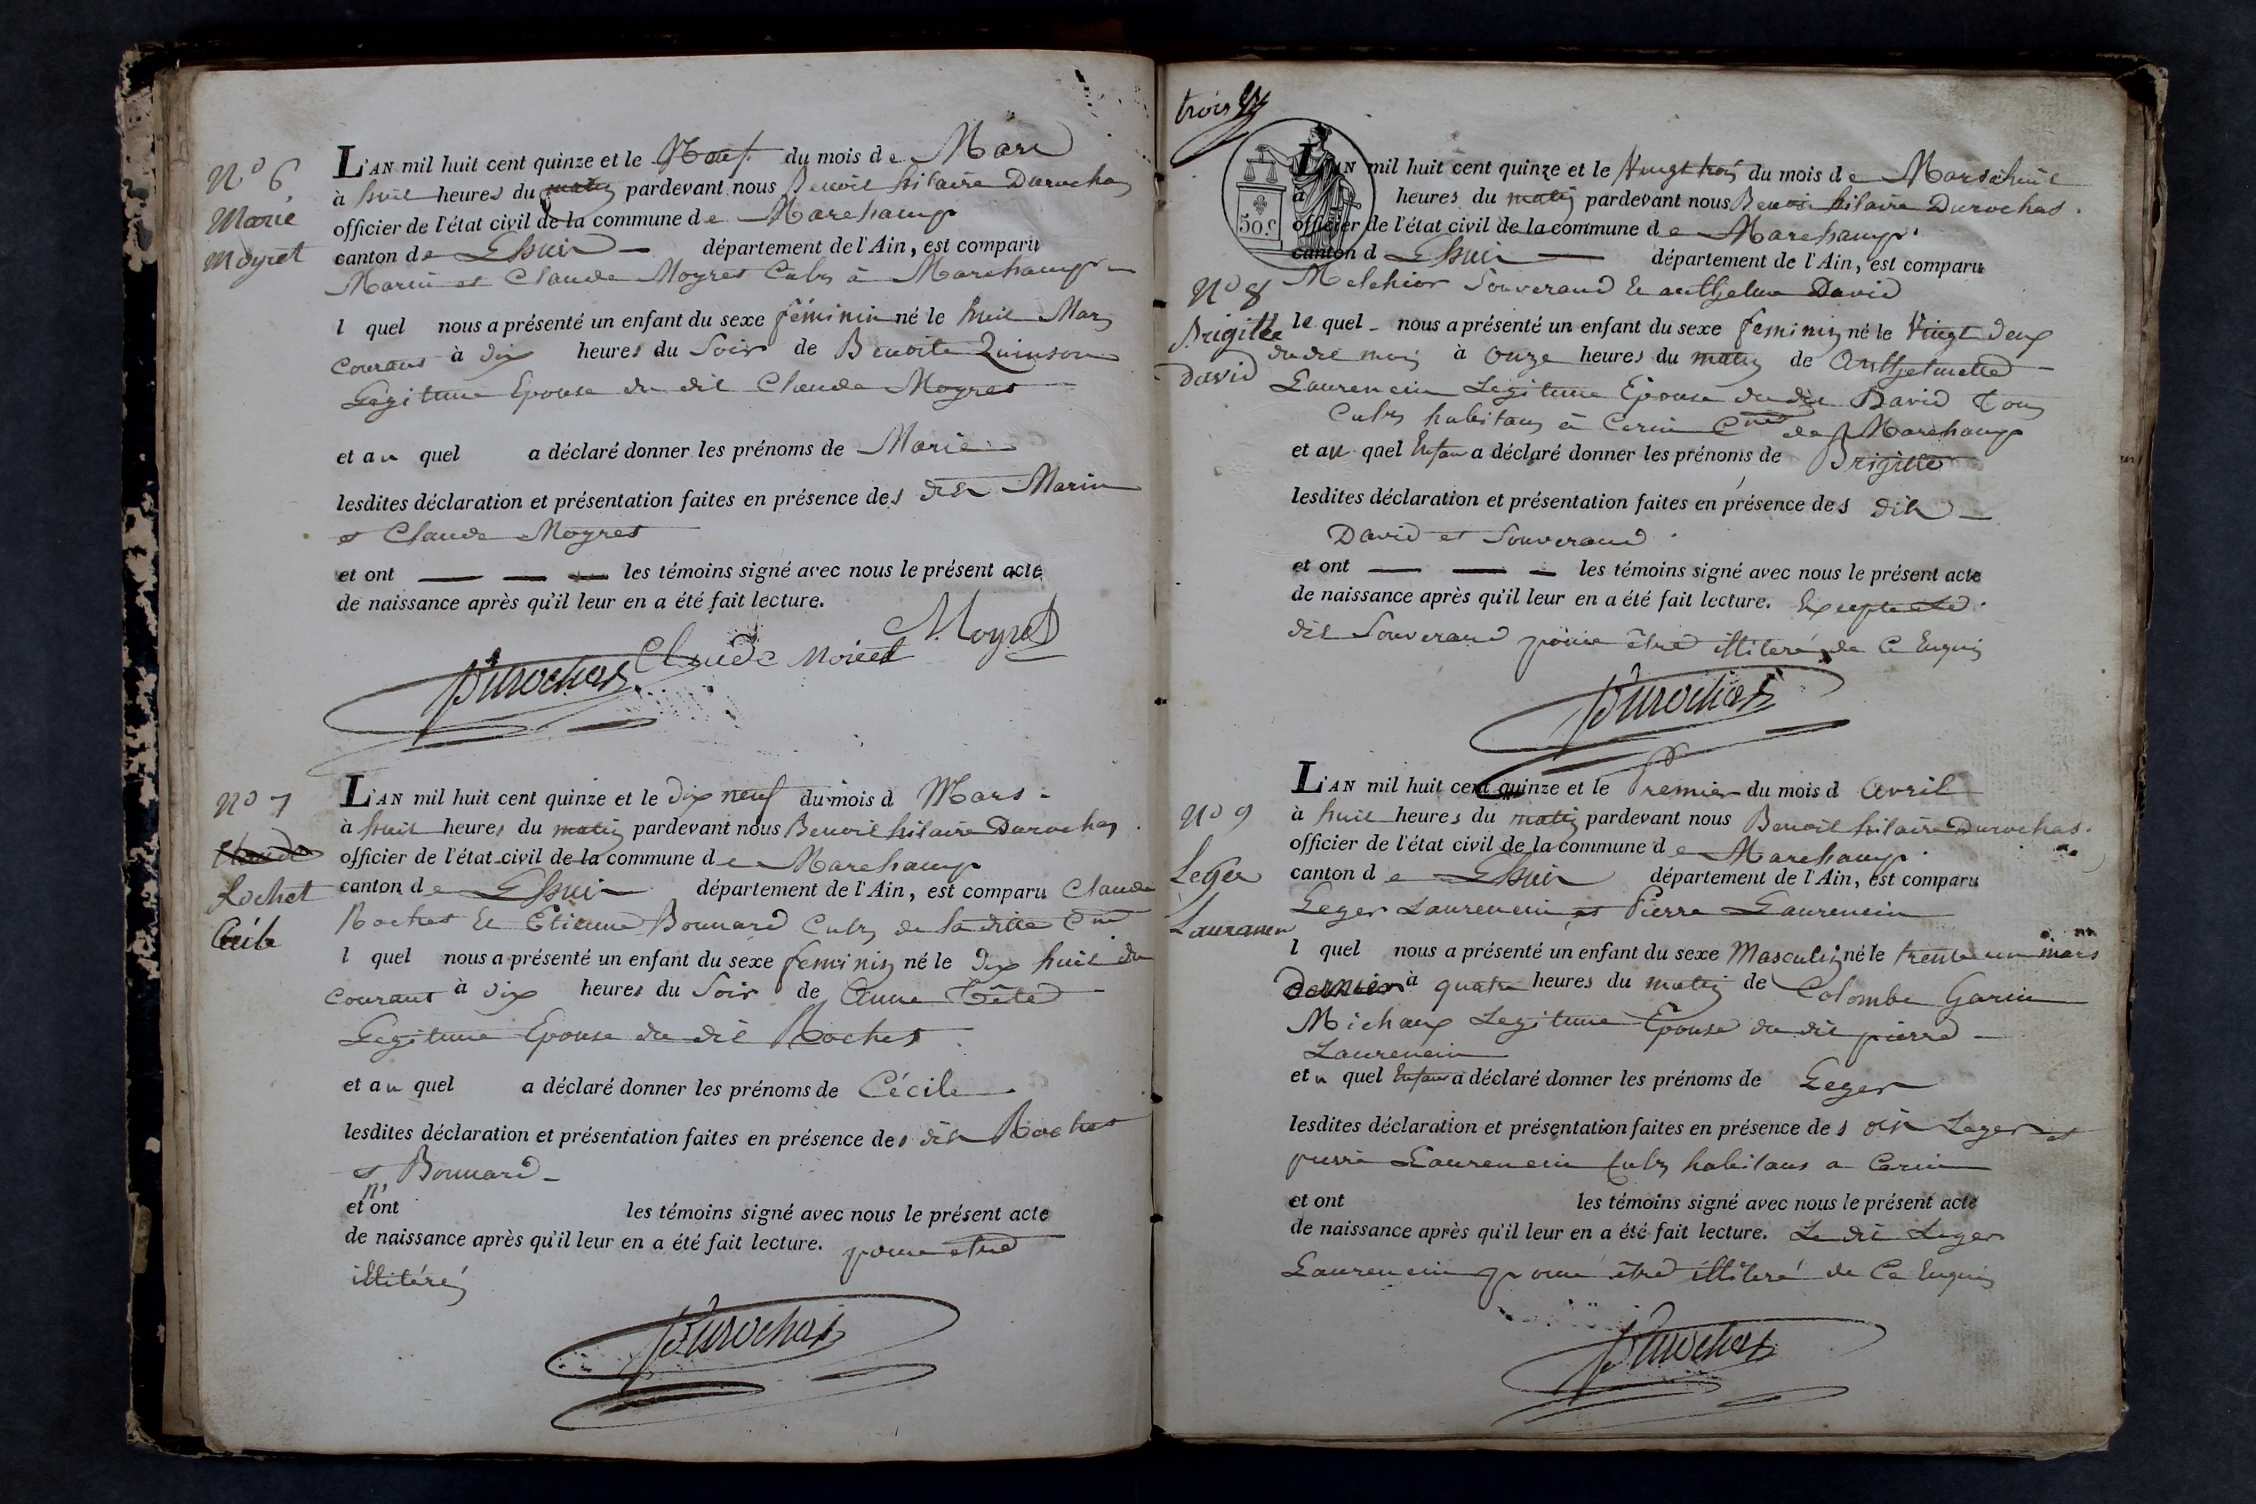 N° 6
Marie
Moyret
L'AN mil huit cent quinze et le Neuf du mois de Mars
à huit heures du matin pardevant nous Benoit hilaire Durochas
officier de l'état civil de la commune de Marchamp
canton de Lhuis département de l'Ain, est comparu
Marin et Claude Moyret Cultrs à Marchamp
l quel nous a présenté un enfant du sexe féminin né le huit Mars
courant à dix heures du Soir de Benoite Quinson
Legitime Epouse du dit Claude Moyret
et au quel a déclaré donner les prénoms de Marie
lesdites déclaration et présentation faites en présence des dits Marin
et Claude Moyret
et ont les témoins signé avec nous le présent acte
de naissance après qu'il leur en a été fait lecture.
Moyret
Claude Moiret
Durochas
N° 7
Rochet
Cécile
L'AN mil huit cent quinze et le dix neuf du mois d Mars
à huit heures du matin pardevant nous Benoit hilaire Durochas
officier de l'état civil de la commune de Marchamp
canton de Lhuis département de l'Ain, est comparu Claude
Rochet Et Etienne Bonnard Cultrs de la dite Cne
l quel nous a présenté un enfant du sexe feminin né le Dix huit du
courant à dix heures du Soir de Anne Tête
Legitime Epouse du dit Rochet
et au quel a déclaré donner les prénoms de Cécile
lesdites déclaration et présentation faites en présence des dits Rochet
et Bonnard
et n'ont les témoins signé avec nous le présent acte
de naissance après qu'il leur en a été fait lecture. pour être
illitérés
Durochas
trois
50 c.
N° 8
Brigitte
David
L'AN mil huit cent quinze et le Vingt trois du mois de Mars à huit
à heures du matin pardevant nous Benoit hilaire Durochas
officier de l'état civil de la commune de Marchamp
canton d Lhuis département de l'Ain, est comparu
Melchior Souverand Et anthelme David
le quel nous a présenté un enfant du sexe feminin né le Vingt deux
du dit mois à onze heures du matin de Anthelmette
Laurencin Legitime Epouse du dit David Tous
Cultrs habitans à Cerin Cne de Marchamp
et au quel Enfant a déclaré donner les prénoms de Brigitte
lesdites déclaration et présentation faites en présence des dits
David et Souverand
et ont les témoins signé avec nous le présent acte
de naissance après qu'il leur en a été fait lecture. Excepté le
dit Souverand pour être illiteré de Ce Enquis
Durochas
N° 9
Leger
Laurancin
L'AN mil huit cent quinze et le Premier du mois d Avril
à huit heures du matin pardevant nous Benoit hilaire Durochas
officier de l'état civil de la commune de Marchamp
canton de Lhuis département de l'Ain, est comparu
Leger Laurencin et Pierre Laurencin
l quel nous a présenté un enfant du sexe Masculin né le trente un mars
dernier à quatre heures du matin de Colombe Garin
Michaux Legitime Epouse du dit pierre
Laurencin
et u quel Enfant a déclaré donner les prénoms de Leger
lesdites déclaration et présentation faites en présence des dits Leger et
pierre Laurencin Cultrs habitans a Cerin
et ont les témoins signé avec nous le présent acte
de naissance après qu'il leur en a été fait lecture. Le dit Leger
Laurencin pour être illiteré de Ce Enquis
Durochas